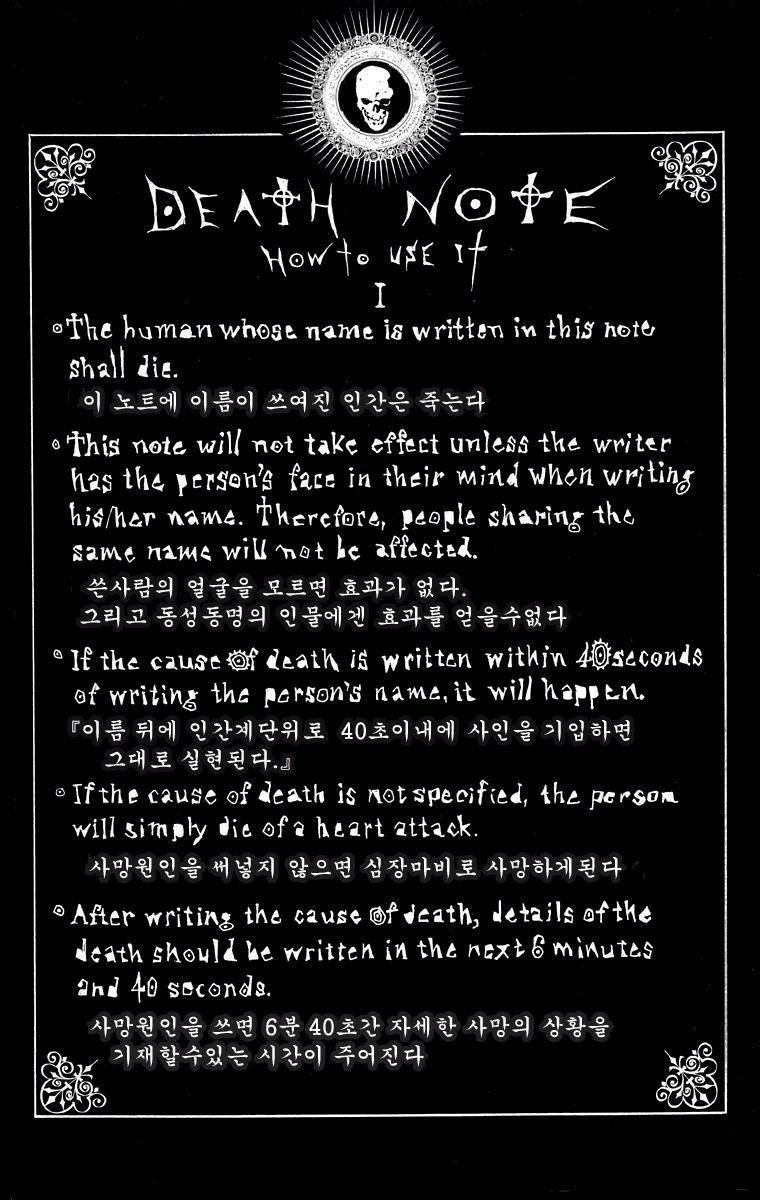 DEATH NOTE
HOW to USE It
I
The human whose name is written in this note
shall die.
이 노트에 이름이 쓰여진 인간은 죽는다
This note will not take effect unless the writer
has the person's face in their mind when writing
his/her name. Therefore, people sharing the
same name will not be affected.
쓴사람의 얼굴을 모르면 효과가 없다.
그리고 동성동명의 인물에겐 효과를 얻을수없다
If the cause of death is written within 40 seconds
of writing the person's name, it will happen.
『이름 뒤에 인간계단위로 40초이내에 사인을 기입하면
그대로 실현된다.』
If the cause of death is not specified, the person
will simply die of a heart attack.
사망원인을 써넣지 않으면 심장마비로 사망하게된다
After writing the cause of death, details of the
death should be written in the next 6 minutes
and 40 seconds.
사망원인을 쓰면 6분 40초간 자세한 사망의 상황을
기재할수있는 시간이 주어진다